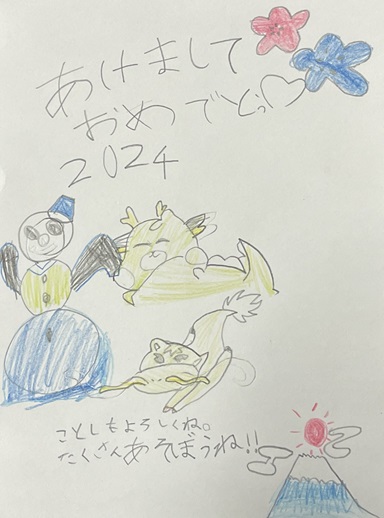 あけまして
おめでとっ♡
2024
ことしもよろしくね。
たくさんあそぼうね!!